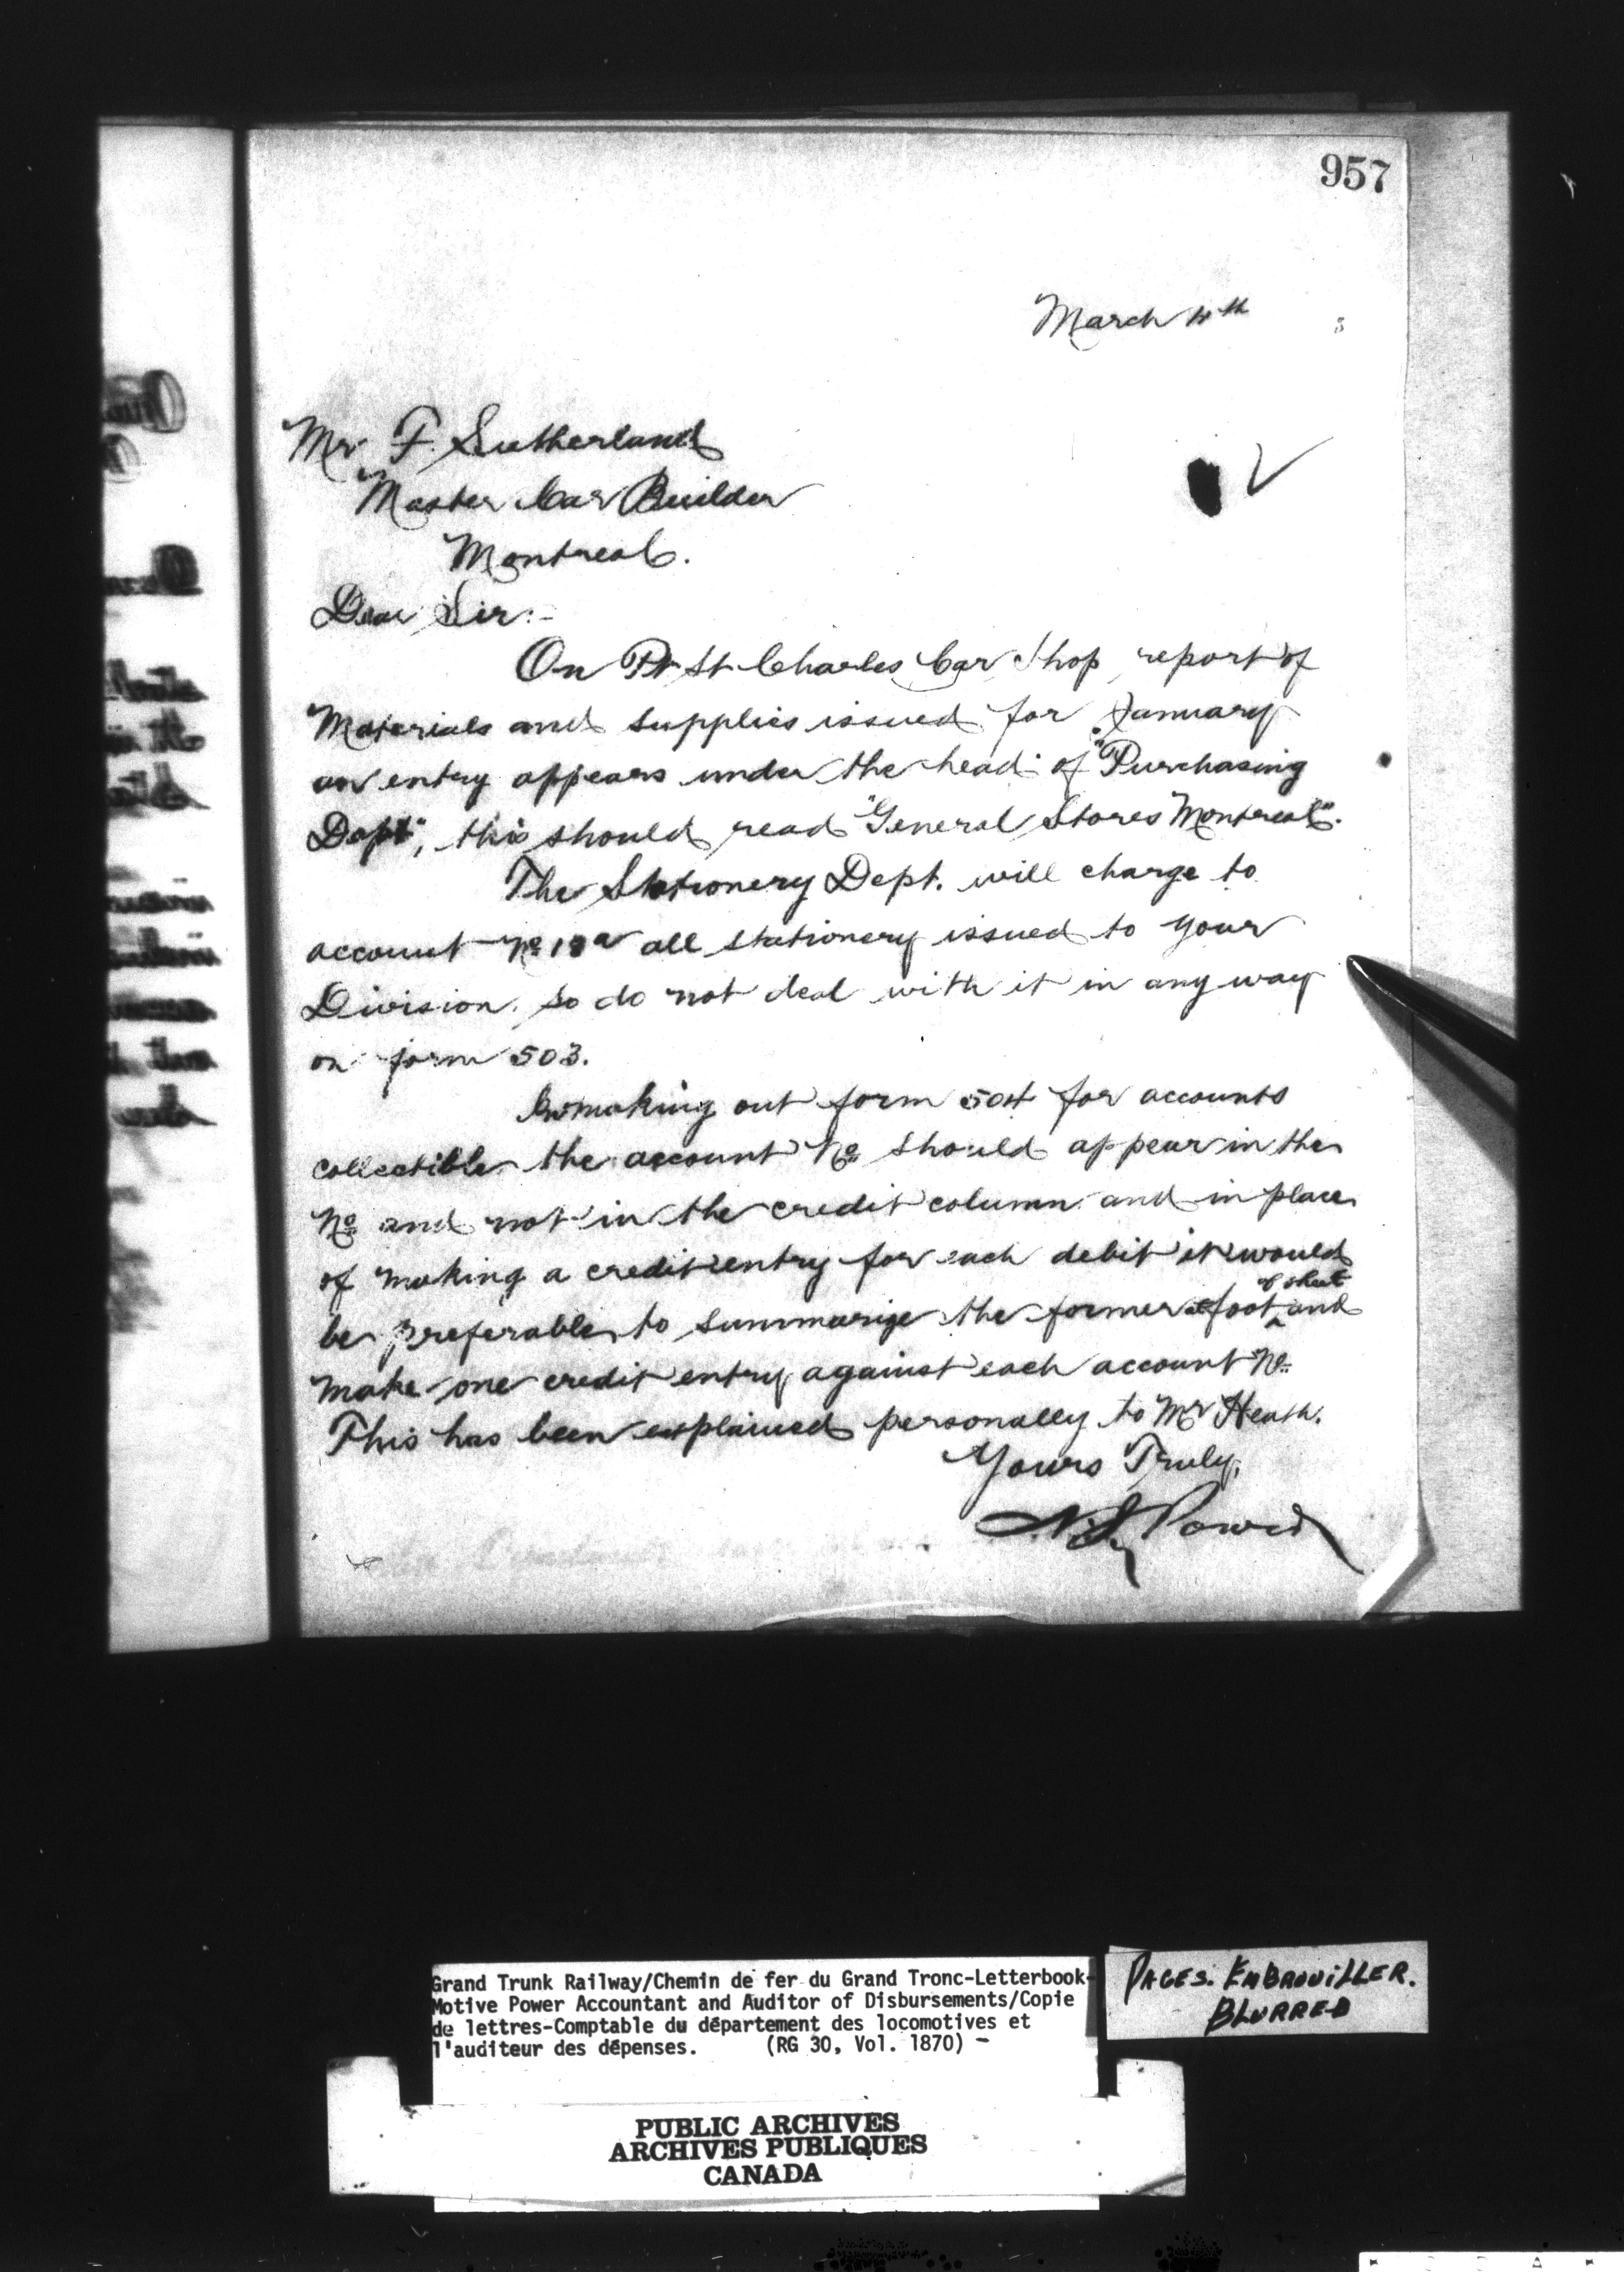 957
March 4th
Mr F. Sutherland
Master Car Builder
Montreal.
Dear Sir:-
On Pt St Charles Car Shop report of
Materials and supplies issued for January
an entry appears under the head of "Purchasing
Dept", this should read "General Stores Montreal".
The Stationery Dept. will charge to
account No all stationery issued to your
Division. so do not deal with it in any way
on form 503.
In making out form 504 for accounts
collectible the account No should appear in the
No and not in the credit column and in place
of making a credit entry for each debit it would
be preferable to summarize the former at foot of sheet and
make one credit entry against each account No
This has been explained personally to Mr Heath.
Yours Truly,
Power
Grand Trunk Railway/Chemin de fer du Grand Tronc-Letterbook-
Motive Power Accountant and Auditor of Disbursements/Copie
de lettres-Comptable du département des locomotives et
l'auditeur des dépenses. (RG 30, Vol. 1870) -
PAGES. EMBROUILLER.
BLURRED
PUBLIC ARCHIVES
ARCHIVES PUBLIQUES
CANADA